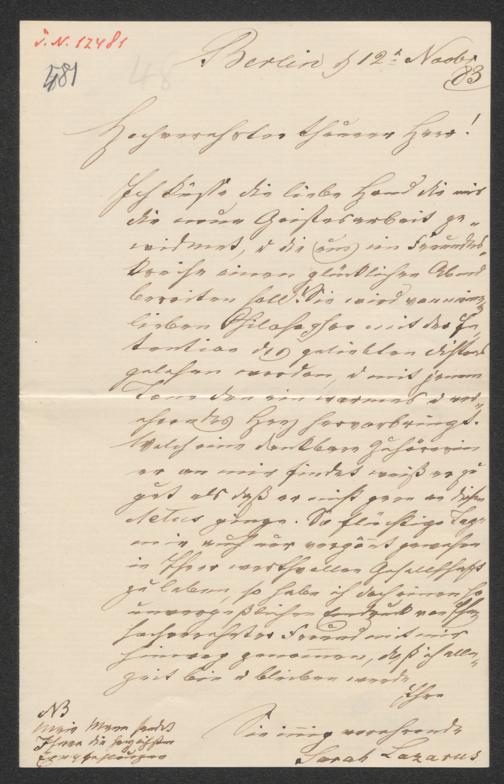 J. N. 12481
481
Berlin d 12t Novbr
83
Hochverehrter theurer Herr!
Ich küsse die liebe Hand die mir
die neue Geistesarbeit ge-
widmet, u die (uns) im Freundes-
kreise einen glücklichen Abend
bereiten soll. Sie wird von meinem
lieben Philosophen mit der In-
tention des geliebten Dichters
gelesen werden, u mit jenem
Tone den ein warmes u ver-
ehrendes Herz hervorbringt.
Welch eine dankbare Zuhörerin
er an mir findet weiß er zu
gut als daß er nicht gern an diesen
Actus ginge. So flüchtige Tage
mir auch nur vergönt gewesen
in Ihrer werthvollen Gesellschaft
zu leben, so habe ich doch einen so
unvergeßlichen Eindruck von Ihnen
hochverehrter Freund mit mir
hinweg genommen, daß ich alle-
zeit bin u bleiben werde
Ihre
Sie innig verehrende
Sarah Lazarus
NB
Mein Mann sendet
Ihnen die herzlichsten
Empfehlungen